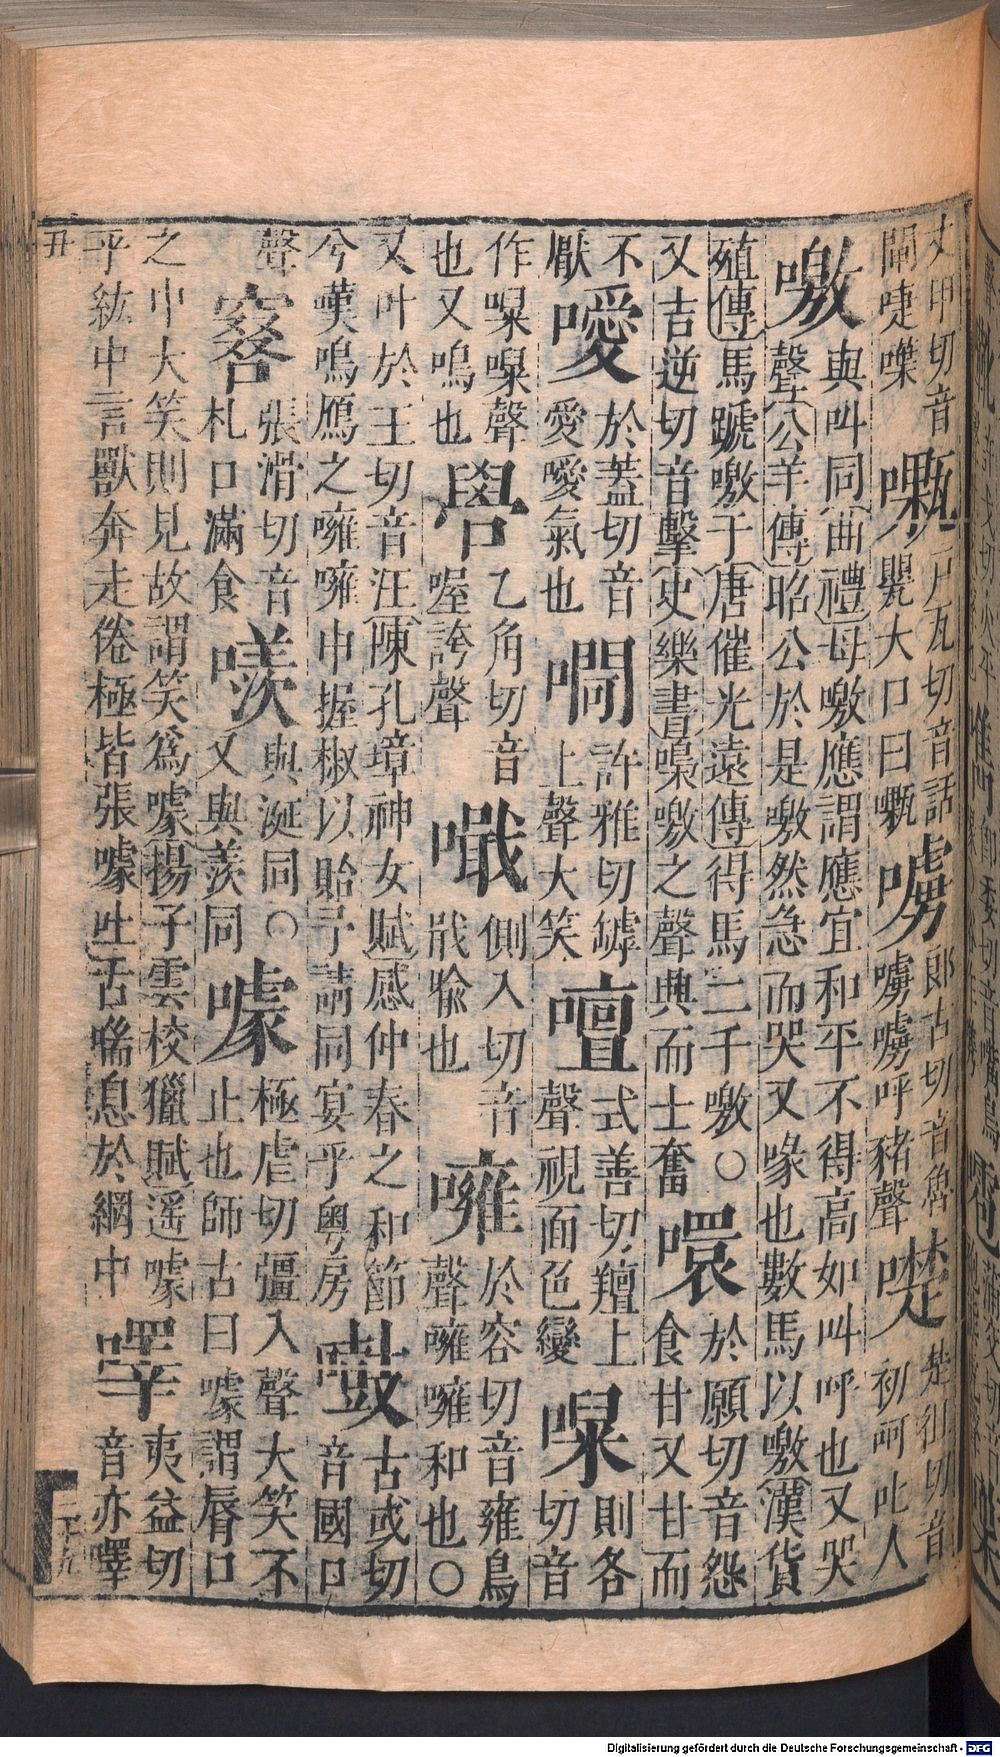 丈甲切音閘啑喋 戶瓦切音話大口曰 郎古切音魯呼豬聲 楚徂切音初呵叱人
噭與叫同曲禮毋噭應謂應宜和平不得高如叫呼也又哭聲公羊傳昭公於是噭然急而哭又喙也數馬以噭漢貨
殖傳馬蹏噭千唐崔光遠傳得馬二千噭○又吉逆切音擊史樂書噪噭之聲興而士奮 噮於願切音怨食甘又甘而
不厭 噯於蓋切音愛噯氣也 許雅切罅上聲大笑 式善切羶上聲視面色變 則各切音
作聲也又鳴也 乙角切音喔誇聲 㗱側入切音戢也 噰於容切音雍鳥聲噰噰和也○
又叶於王切音汪陳孔璋神女賦感仲春之和節兮嘆鳴鴈之噰噰申握椒以貽予請同宴乎粤房 古或切音國口
聲 張滑切音札口滿食 與涎同○又與羨同 噱極虐切彊入聲大笑不止也師古曰噱謂脣口
之中大笑則見故謂笑爲噱揚子雲校獵賦遥噱乎紘中言獸奔走倦極皆張噱吐舌喘息於網中 夷益切音亦
丑
二十九
Digitalisierung gefördert durch die Deutsche Forschungsgemeinschaft - DFG